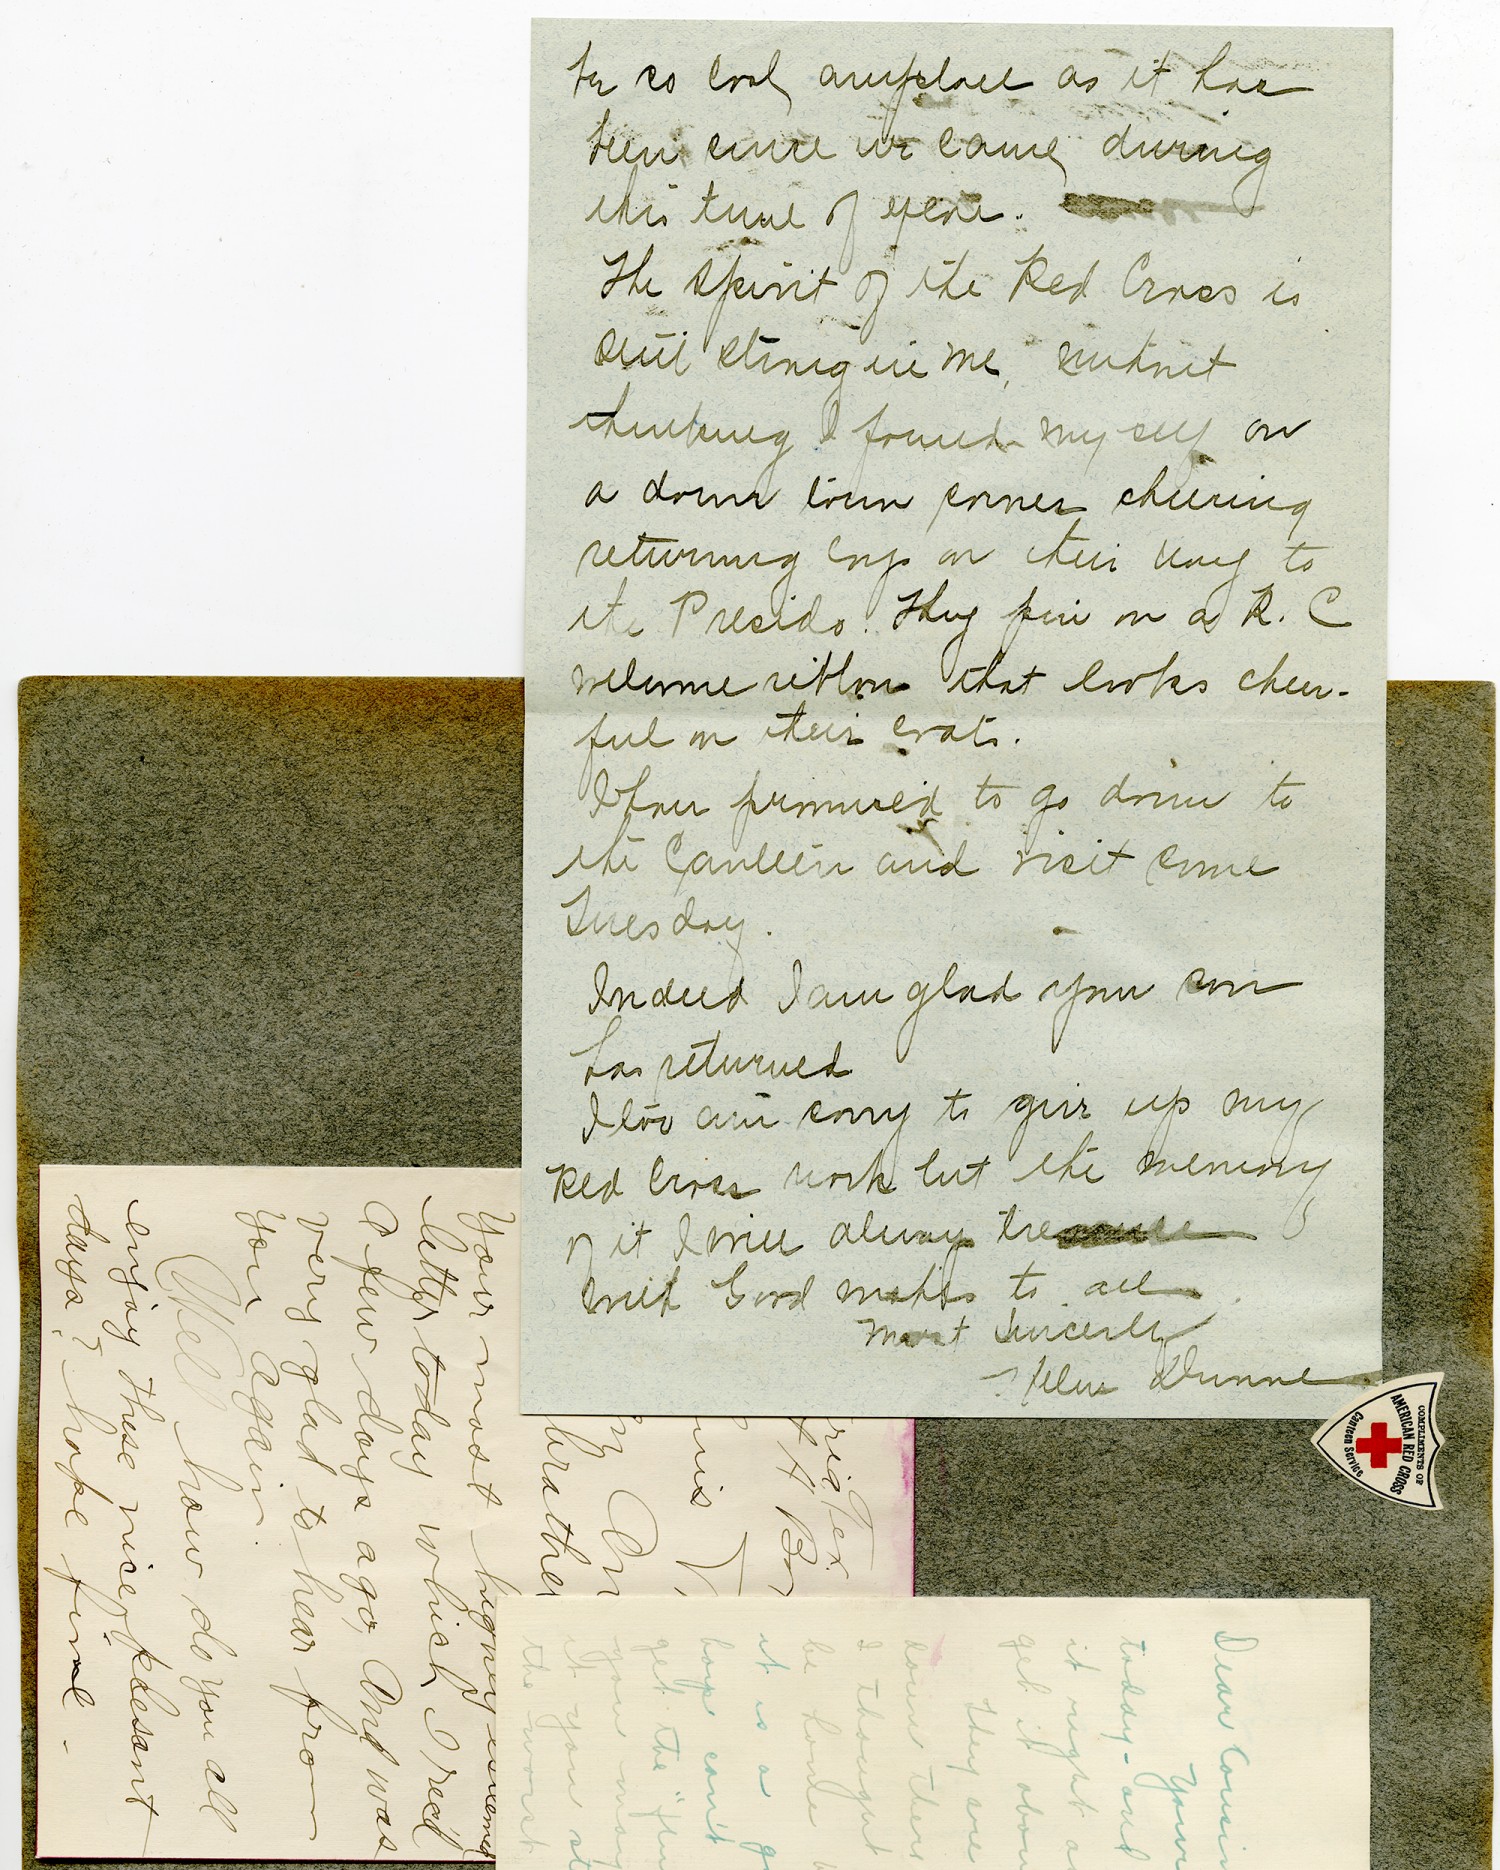 be so cool anyplace as it has
been since we came, during
this time of year.
The spirit of the Red Cross is
still strong in me, without
thinking I found myself on
a down town corner cheering
returning boys on their way to
the Presido. They pin on a R. C
welcome ribbon that looks cheer-
ful on their coats.
I have promised to go down to
the Canteen and visit some
Tuesday.
Indeed I am glad your son
has returned
I too am sorry to give up my
Red Cross work but the memory
of it I will always treasure
With Good wishes to all
Most Sincerely
Helen Dunne
COMPLIMENTS OF
AMERICAN RED CROSS
Canteen Service
Your most highly
letter today which I rec'd
a few days ago, And was
very glad to hear from
you again.
Well how do you all
enjoy these nice plesant
days? hope fine.
Tex.
Dear Cousin
Your
today - and
it right a
get it abou
They are
down there
I thought
be home
it is a g
hope can't
get the "flu
you may
it you st
the worst